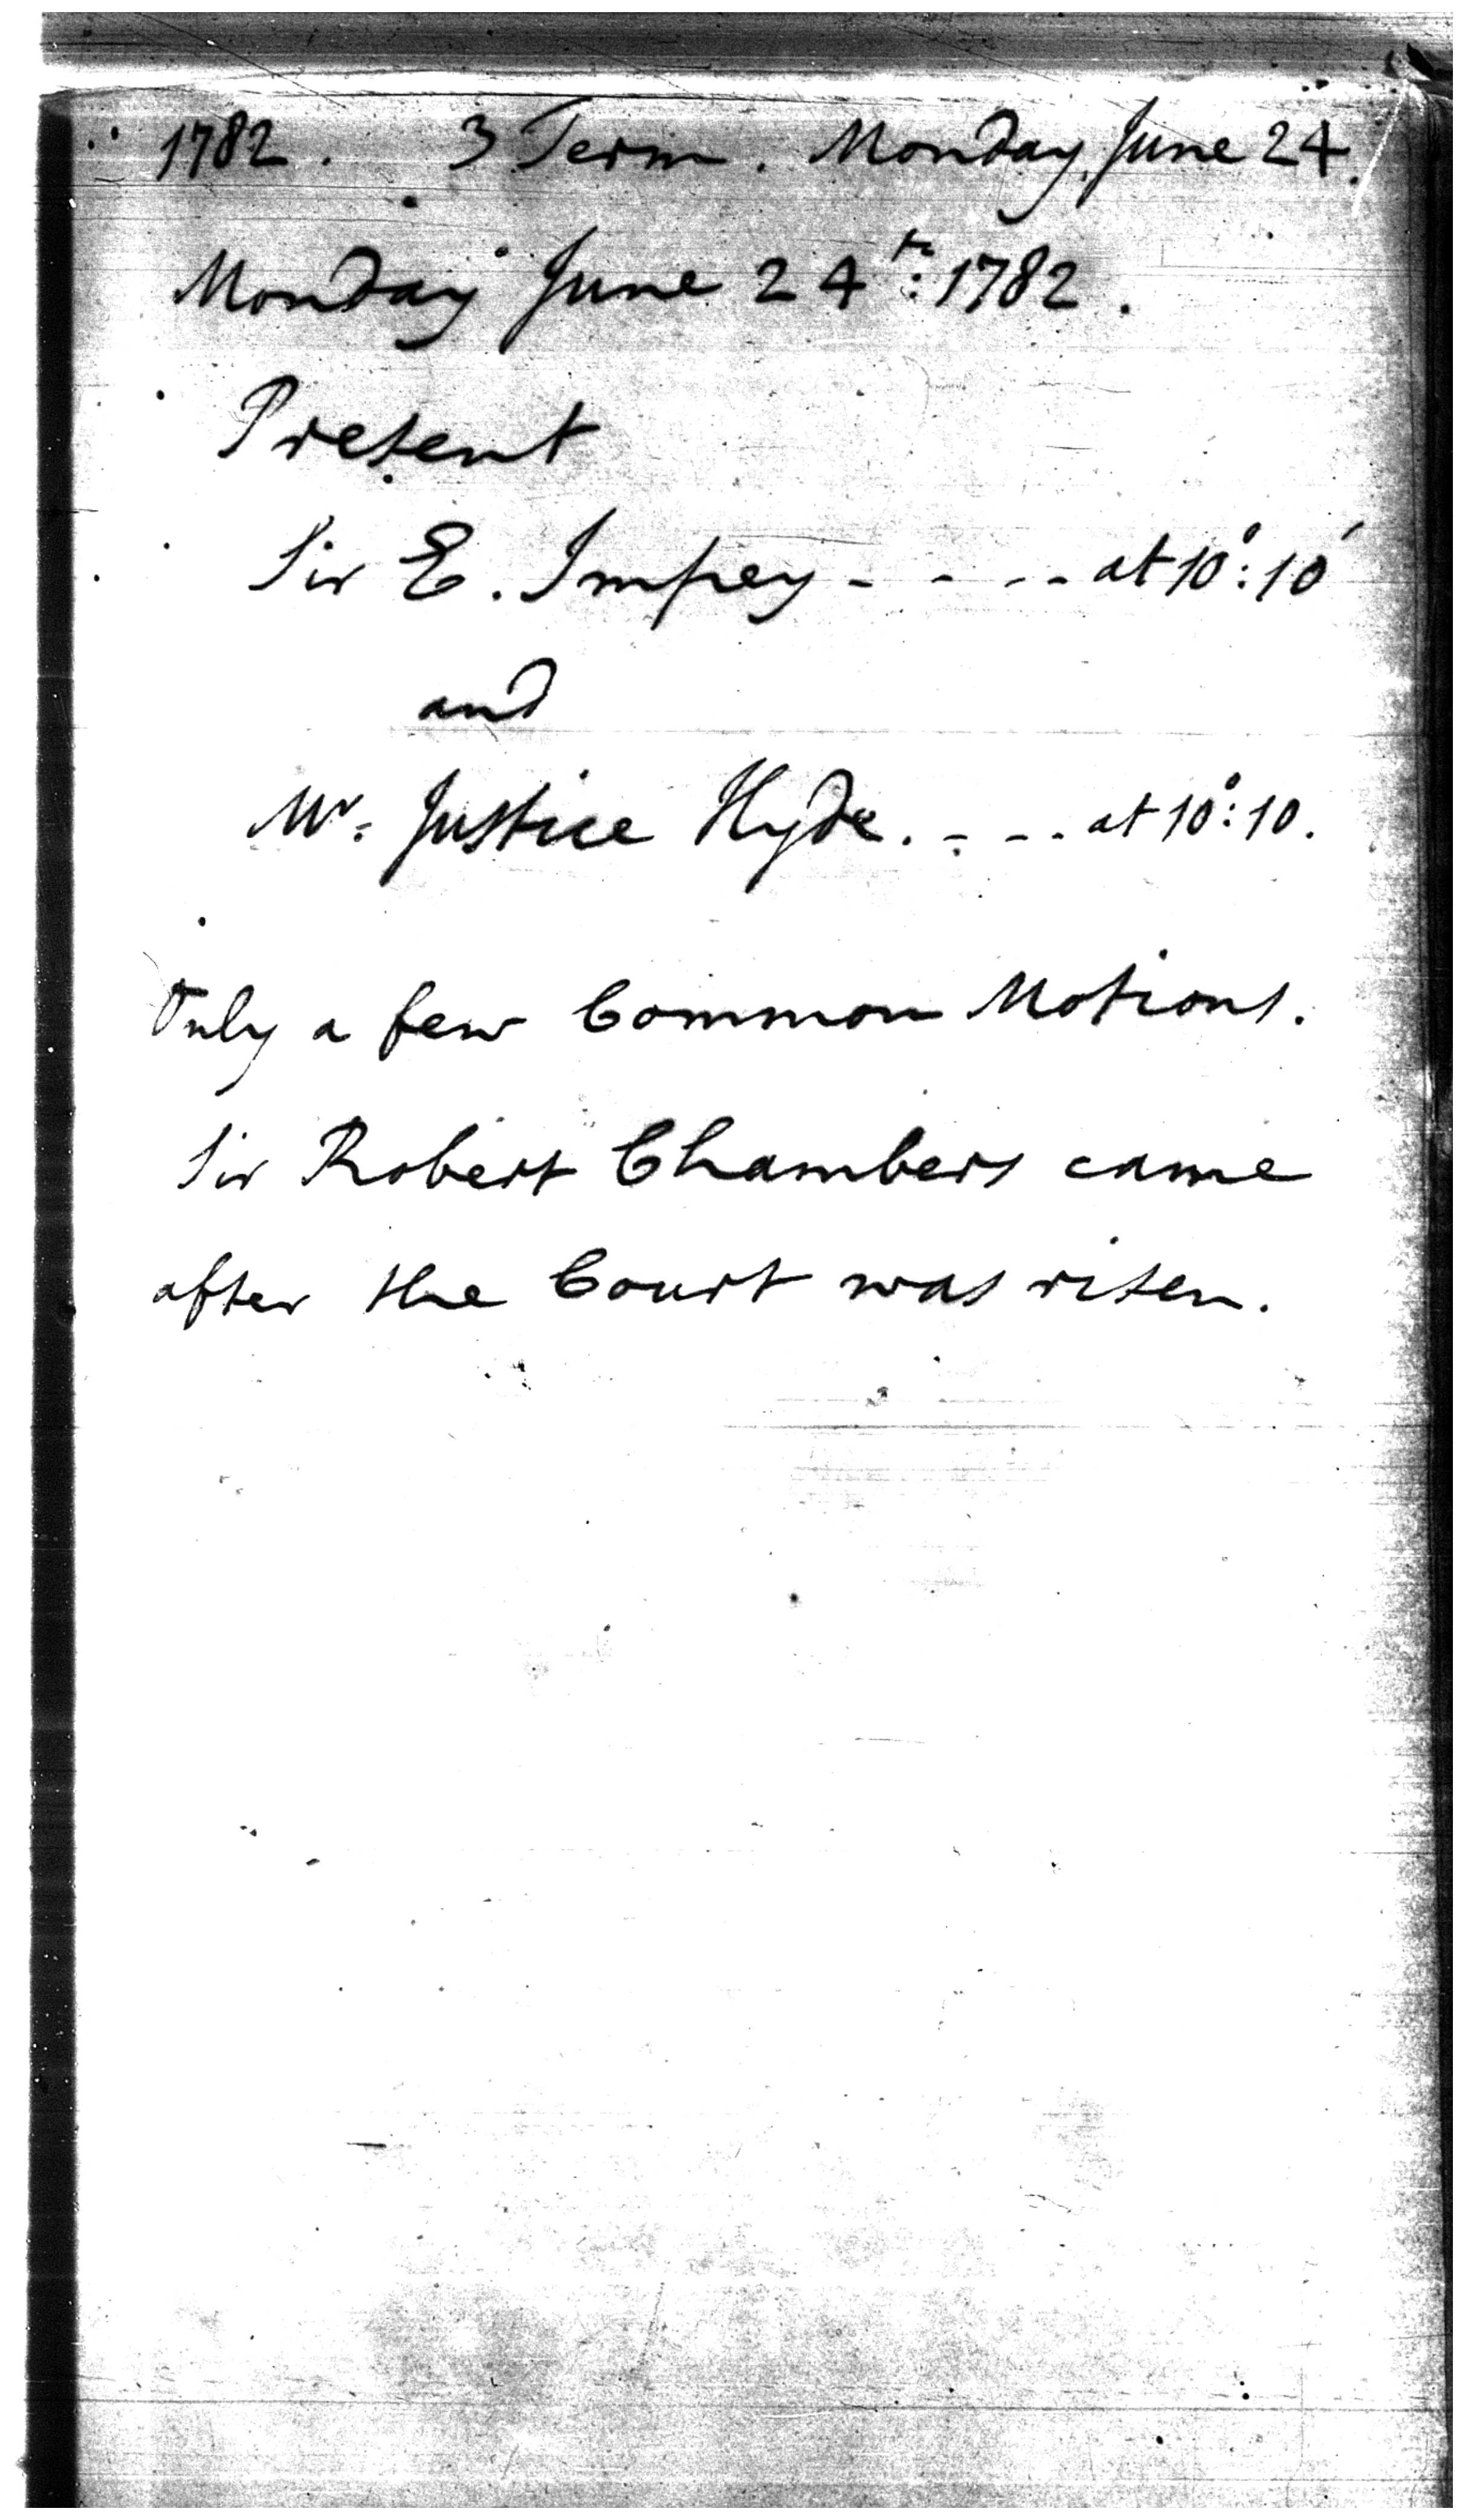 1782. 3 Term. Monday, June 24.
Monday June 24th: 1782.
Present
Sir E. Impey - - - - at 10°: 10'
and
Mr. Justice Hyde. - - - at 10°: 10.
Only a few Common Motions.
Sir Robert Chambers came
after the Court was risen.